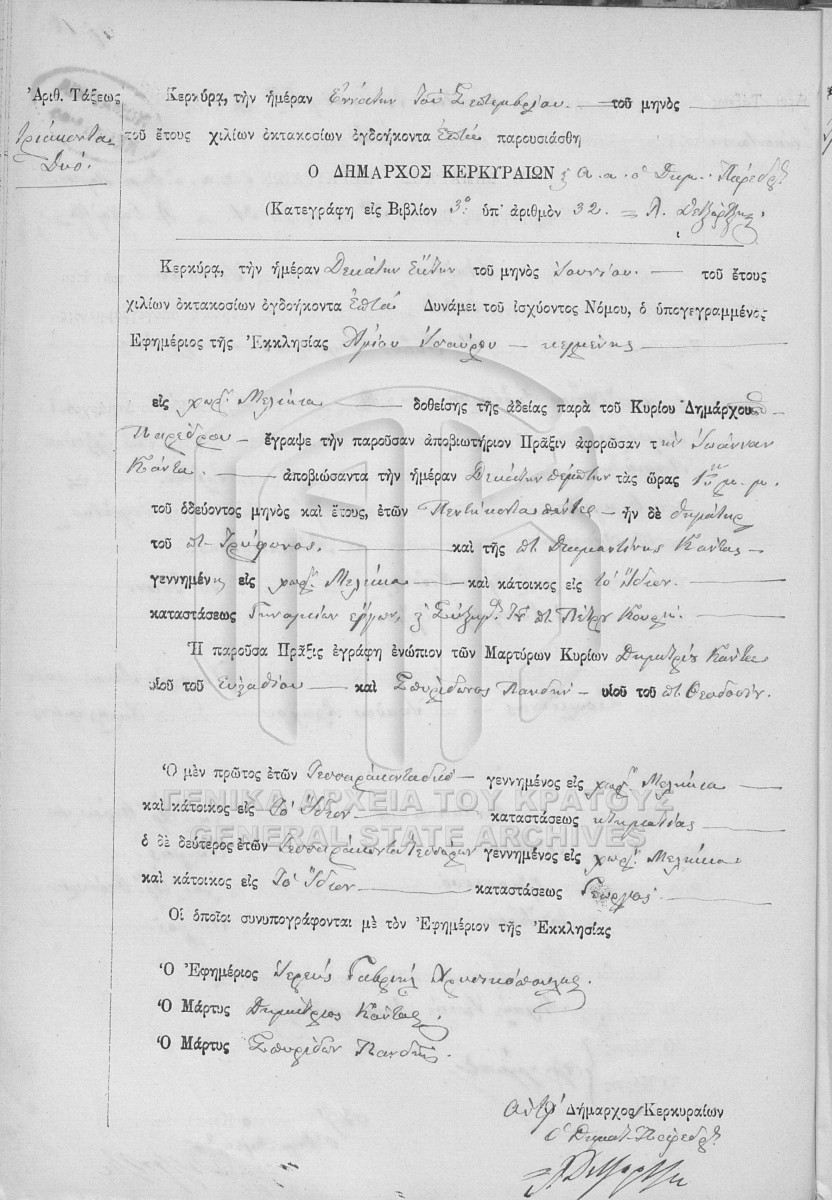 Ἀριθ. Τάξεως
τριάκοντα
δυό.
Κερκύρᾳ, τὴν ἡμέραν Ἐννάτην τοῦ Σεπτεμβρίου τοῦ μηνὸς
τοῦ ἔτους χιλίων ὀκτακοσίων ὀγδοήκοντα ἑπτά παρουσιάσθη
Ο ΔΗΜΑΡΧΟΣ ΚΕΡΚΥΡΑΙΩΝ α. α. ὁ Δημ. Πάρεδρ
(Κατεγράφη εἰς Βιβλίον 3ον ὑπ' ἀριθμὸν 32.
Κερκύρᾳ, τὴν ἡμέραν Δεκάτην Ἕκτην τοῦ μηνὸς Ἰουνίου τοῦ ἔτους
χιλίων ὀκτακοσίων ὀγδοήκοντα ἑπτά Δυνάμει τοῦ ἰσχύοντος Νόμου, ὁ ὑπογεγραμμένος
Ἐφημέριος τῆς Ἐκκλησίας Ἁγίου κειμένης
εἰς χωρ. Μελίκια δοθείσης τῆς ἀδείας παρὰ τοῦ Κυρίου Δημάρχου
Παρέδρου ἔγραψε τὴν παροῦσαν ἀποβιωτήριον Πρᾶξιν ἀφορῶσαν τὴν Ἰωάνναν
Κάντα ἀποβιώσαντα τὴν ἡμέραν Δεκάτην πέμπτην τὰς ὥρας μ. μ.
τοῦ ὁδεύοντος μηνὸς καὶ ἔτους, ἐτῶν Πεντήκοντα πέντε ἦν δὲ θυγάτηρ
τοῦ ποτ. Τρύφωνος καὶ τῆς ποτ. Διαμαντίνης Κάντας
γεννημένη εἰς χωρ. Μελίκια καὶ κάτοικος εἰς τὸ Ἴδιον.
καταστάσεως Γυναικείων ἔργων, Σύζυγ. τοῦ ποτ. Πέτρου
Ἡ παροῦσα Πρᾶξις ἐγράφη ἐνώπιον τῶν Μαρτύρων Κυρίων Δημητρίου Κάντα
υἱοῦ τοῦ Εὐσταθίου καὶ Σπυρίδωνος Πανδὴ υἱοῦ τοῦ ποτ. Θεοδοσίου.
Ὁ μὲν πρῶτος ἐτῶν Τεσσαράκοντα δύο γεννημένος εἰς χωρ. Μελίκια
καὶ κάτοικος εἰς τὸ Ἴδιον καταστάσεως κτηματίας
ὁ δὲ δεύτερος ἐτῶν Τεσσαράκοντα τεσσάρων γεννημένος εἰς χωρ. Μελίκια
καὶ κάτοικος εἰς τὸ Ἴδιον καταστάσεως Γεωργός.
Οἱ ὁποῖοι συνυπογράφονται μὲ τὸν Ἐφημέριον τῆς Ἐκκλησίας
Ὁ Ἐφημέριος Ἱερεὺς Γαβριὴλ Χρυσικόπουλος.
Ὁ Μάρτυς Δημήτριος Κάντας
Ὁ Μάρτυς Σπυρίδων Πανδής.
Δήμαρχος Κερκυραίων
ὁ Δημοτ. Πάρεδρ
ΓΕΝΙΚΑ ΑΡΧΕΙΑ ΤΟΥ ΚΡΑΤΟΥΣ
GENERAL STATE ARCHIVES